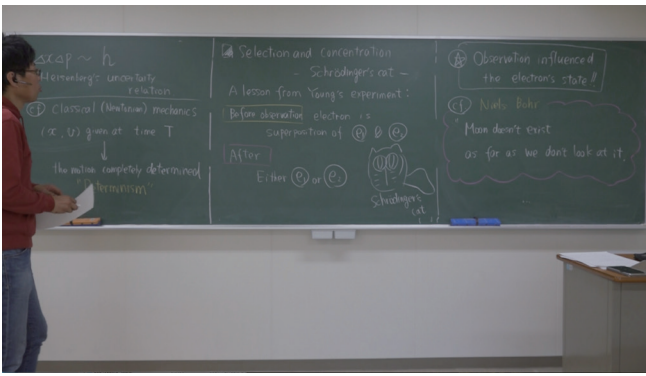 ΔxΔp ~ h
Heisenberg's uncertainty
relation
cf Classical (Newtonian) mechanics
(x, v) given at time T
↓
the motion completely determined
"Determinism"
Selection and concentration
- Schrödinger's cat -
A lesson from Young's experiment:
Before observation electron is
superposition of e₁ & e₂
After
Either e₁ or e₂
Schrödinger's
cat
Observation influenced
the electron's state!!
cf Niels Bohr
"Moon doesn't exist
as far as we don't look at it.